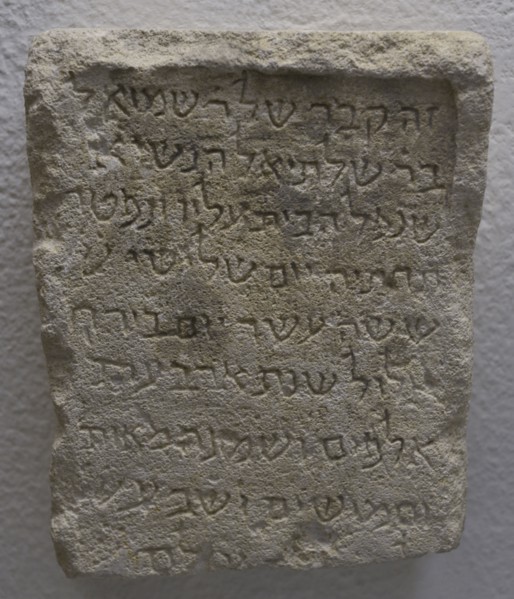 זה קבר שלר שמואל
בר שלתיאל הנשיא
שנפל הבית עליו ונפטר
תחתיה יום שלישי
ששה עשר יום בירח
אלול שנת ארבעת
אלפים ושמנה מאות
וחמשים ושבעה